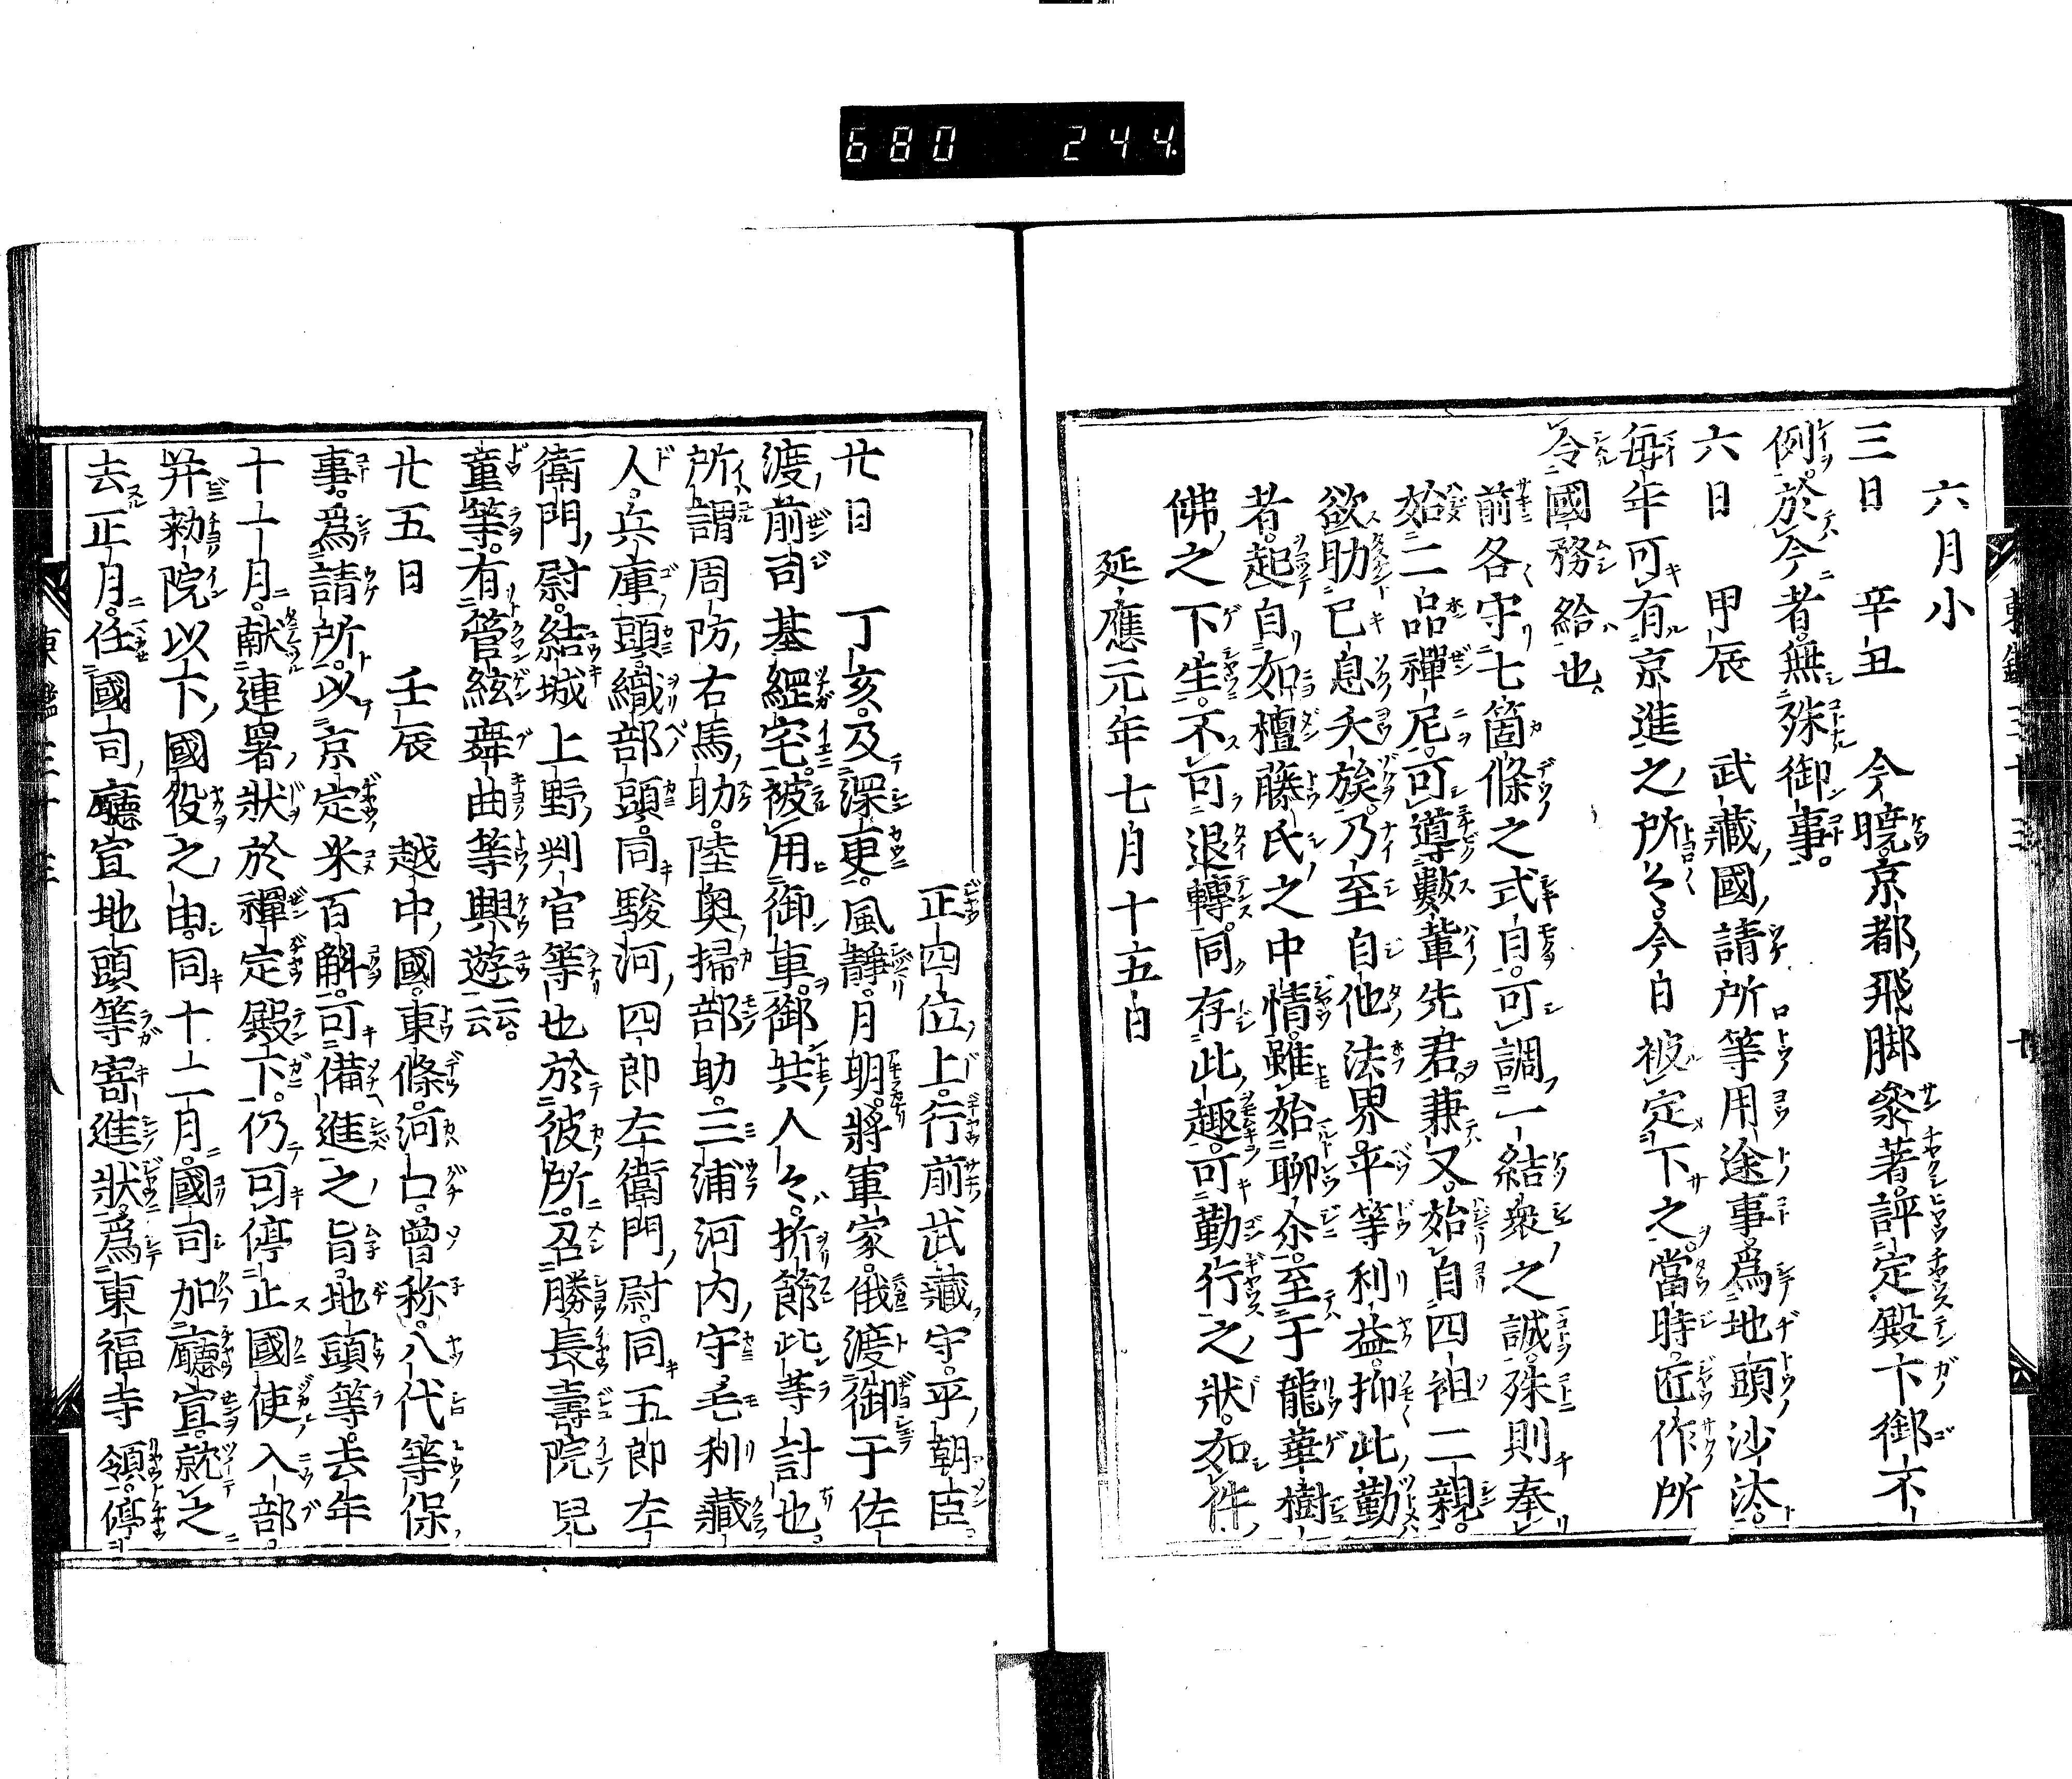 680 244
六月小
三日 辛丑 今曉京都飛脚參著評定殿下御不
例於今者無殊御事
六日 甲辰 武藏國請所等用途事爲地頭沙汰
毎年可有京進之所々今日被定下之當時匠作所
令國務給也
前各守七箇條之式自可調一結衆之誠殊則奉
始二品禪尼可導數輩先君兼又始自四祖二親
欲助已息夭族乃至自他法界平等利益抑此勤
者起自如檀藤氏之中情雖始聊尒至于龍華樹
佛之下生不可退轉同存此趣可勤行之狀如件
延應元年七月十五日
正四位上行前武藏守平朝臣
廿日 丁亥及深更風靜月明將軍家俄渡御于佐
渡前司基綱宅被用御車御共人々折節此等計也
所謂周防右馬助陸奥掃部助三浦河内守毛利藏
人兵庫頭織部頭同駿河四郎左衛門尉同五郎左
衛門尉結城上野判官等也於彼所召勝長壽院兒
童等有管絃舞曲等興遊云云
廿五日 壬辰 越中國東條河口曾祢八代等保
事爲請所以京定米百斛可備進之旨地頭等去年
十一月献連署狀於禪定殿下仍可停止國使入部
并勅院以下國役之由同十二月國司加廳宣就之
去正月任國司廳宣地頭等寄進狀爲東福寺領停